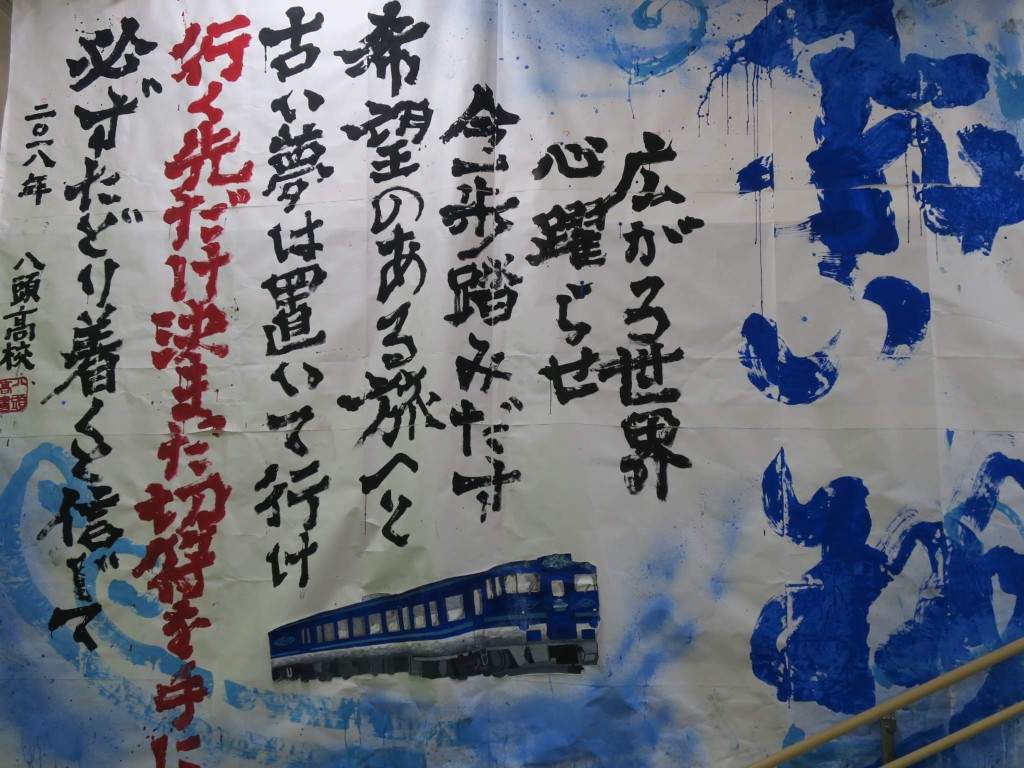 広がる世界
心躍らせ
今一歩踏みだす
希望のある旅へと
古い夢は置いて行け
行く先だけ決まった切符を手に
必ずたどり着くと信じて
二〇一八年 八頭高校